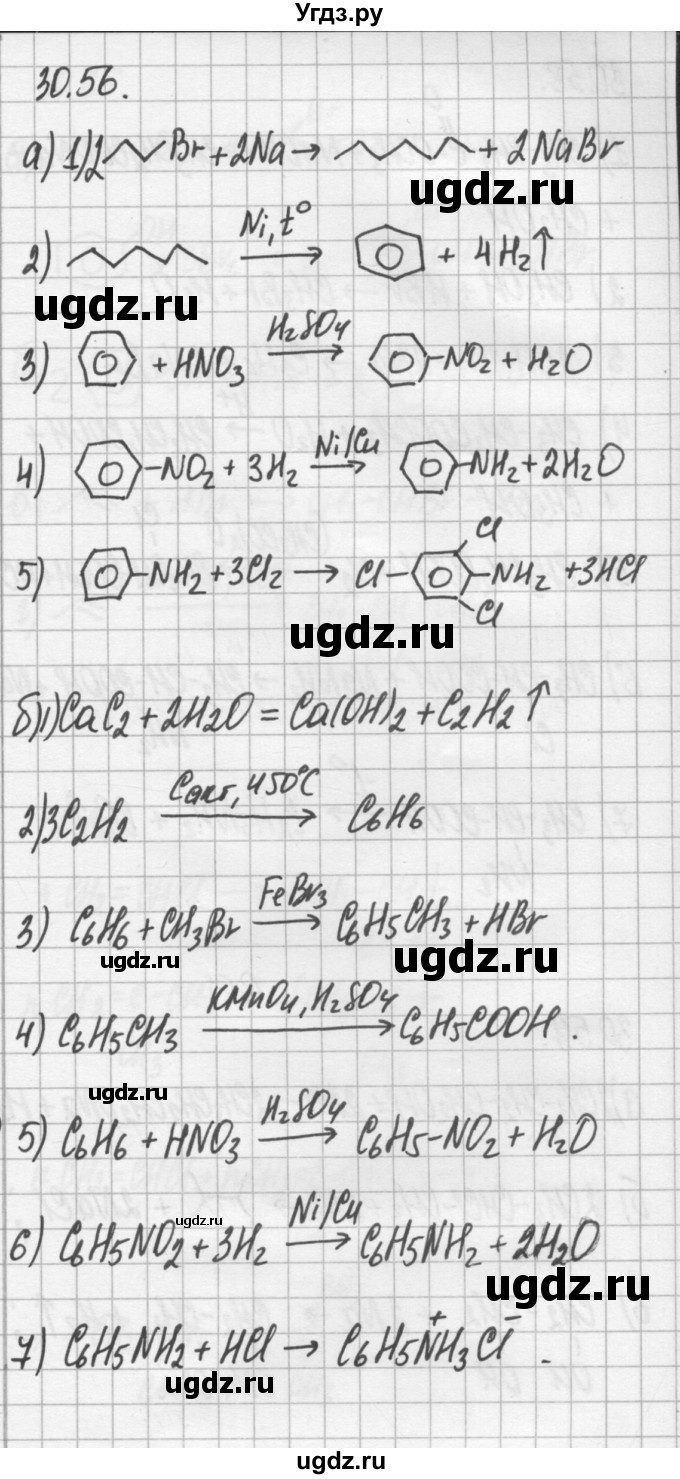 Угдз.ру
30.56.
а) 1) 2 Br + 2Na → + 2NaBr
ugdz.ru
2) Ni, t° → + 4H₂↑
ugdz.ru
3) + HNO₃ H₂SO₄ → -NO₂ + H₂O
4) -NO₂ + 3H₂ Ni/Cu → -NH₂ + 2H₂O
5) -NH₂ + 3Cl₂ → Cl- Cl Cl -NH₂ + 3HCl
ugdz.ru
б) 1) CaC₂ + 2H₂O = Ca(OH)₂ + C₂H₂↑
2) 3C₂H₂ Cакт, 450°C → C₆H₆
3) C₆H₆ + CH₃Br FeBr₃ → C₆H₅CH₃ + HBr
ugdz.ru ugdz.ru
4) C₆H₅CH₃ KMnO₄, H₂SO₄ → C₆H₅COOH.
ugdz.ru
5) C₆H₆ + HNO₃ H₂SO₄ → C₆H₅-NO₂ + H₂O
ugdz.ru
6) C₆H₅NO₂ + 3H₂ Ni/Cu → C₆H₅NH₂ + 2H₂O
ugdz.ru
7) C₆H₅NH₂ + HCl → C₆H₅N⁺H₃Cl⁻.
ugdz.ru
ugdz.ru